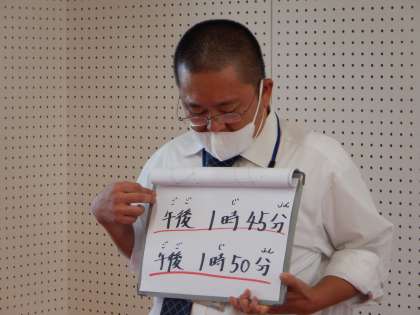 ごご じ ふん
午後 1時45分
ごご じ ふん
午後 1時50分